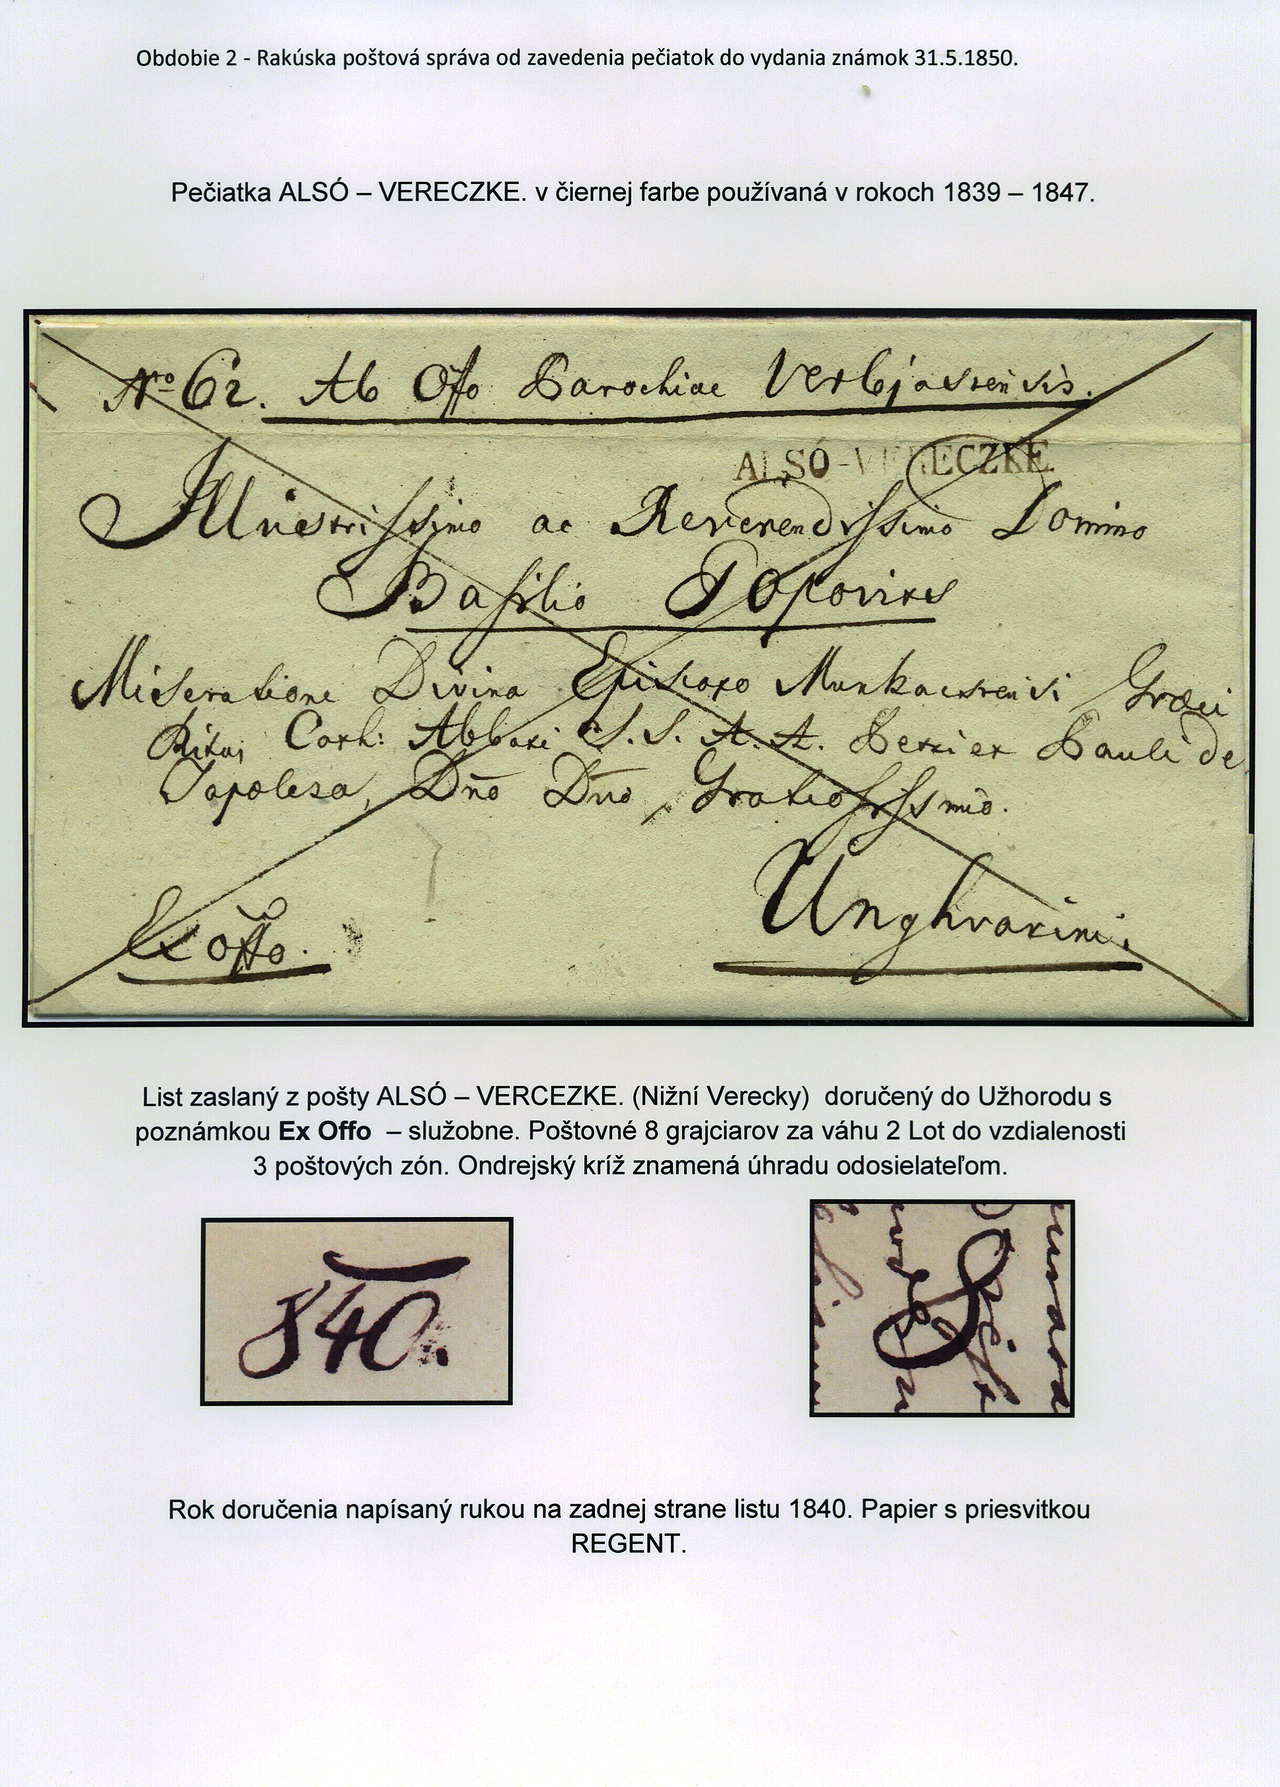 Obdobie 2 - Rakúska poštová správa od zavedenia pečiatok do vydania známok 31.5.1850.
Pečiatka ALSÓ – VERECZKE. v čiernej farbe používaná v rokoch 1839 – 1847.
Nro 62. Ab Offo Parochiae Verbjasensis.
ALSÓ-VERECZKE.
Illustrissimo ac Reverendissimo Domino
Basilio Popovics
Miseratione Divina Episcopo Munkacsiensi Graeci
Ritus Cath: Abbati S. S. A. A. Petri et Pauli de
Tapolcsa, Dno Dno Gratiosissimo.
Unghvarini.
Ex offo.
List zaslaný z pošty ALSÓ – VERCEZKE. (Nižní Verecky) doručený do Užhorodu s
poznámkou Ex Offo – služobne. Poštovné 8 grajciarov za váhu 2 Lot do vzdialenosti
3 poštových zón. Ondrejský kríž znamená úhradu odosielateľom.
840.
8
Rok doručenia napísaný rukou na zadnej strane listu 1840. Papier s priesvitkou
REGENT.